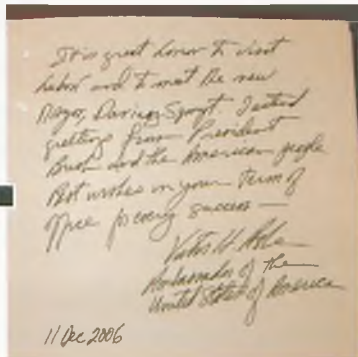 It is great honor to visit
Lubin and to meet the new
Mayor, Dariusz Szpyt. I extend
greetings from President
Bush and the American people
Best wishes in your term of
office for every success —
Victor H. Ashe
Ambassador of the
United States of America
11 Dec 2006